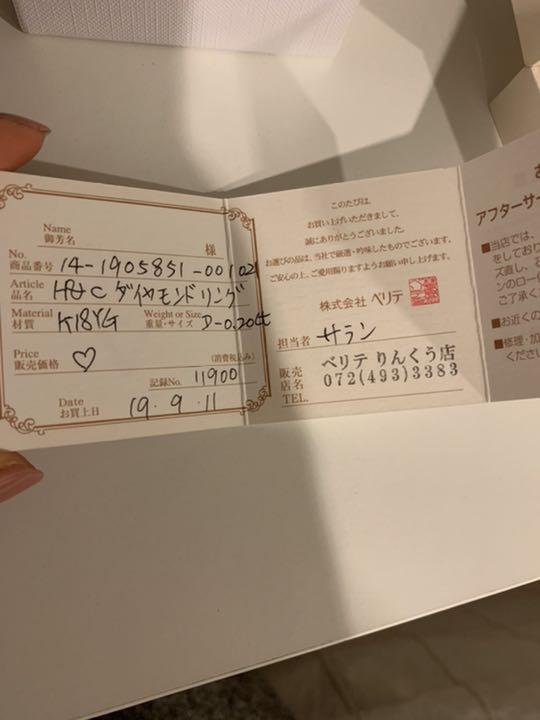 Name
御芳名
様
No.
商品番号 14-1905851-001021
Article
品名 H&C ダイヤモンドリング
Material
材質 K18YG
Weight or Size
重量・サイズ D-0.204ct
Price
販売価格 ♡ (消費税込み)
記録No. 11900
Date
お買上日 19.9.11
このたびは、
お買い上げいただきまして、
誠にありがとうございました。
お選びの品は、当社で厳選・吟味したものでございます。
ご安心の上、ご愛用賜りますようお願い申し上げます。
株式会社 ベリテ
担当者 サラン
販売
店名 ベリテ りんくう店
TEL. 072(493)3383
アフターサー
■当店では、
をしており
ズ直し、
ンのロー
ご了承く
■お近くの
■修理・加
ください